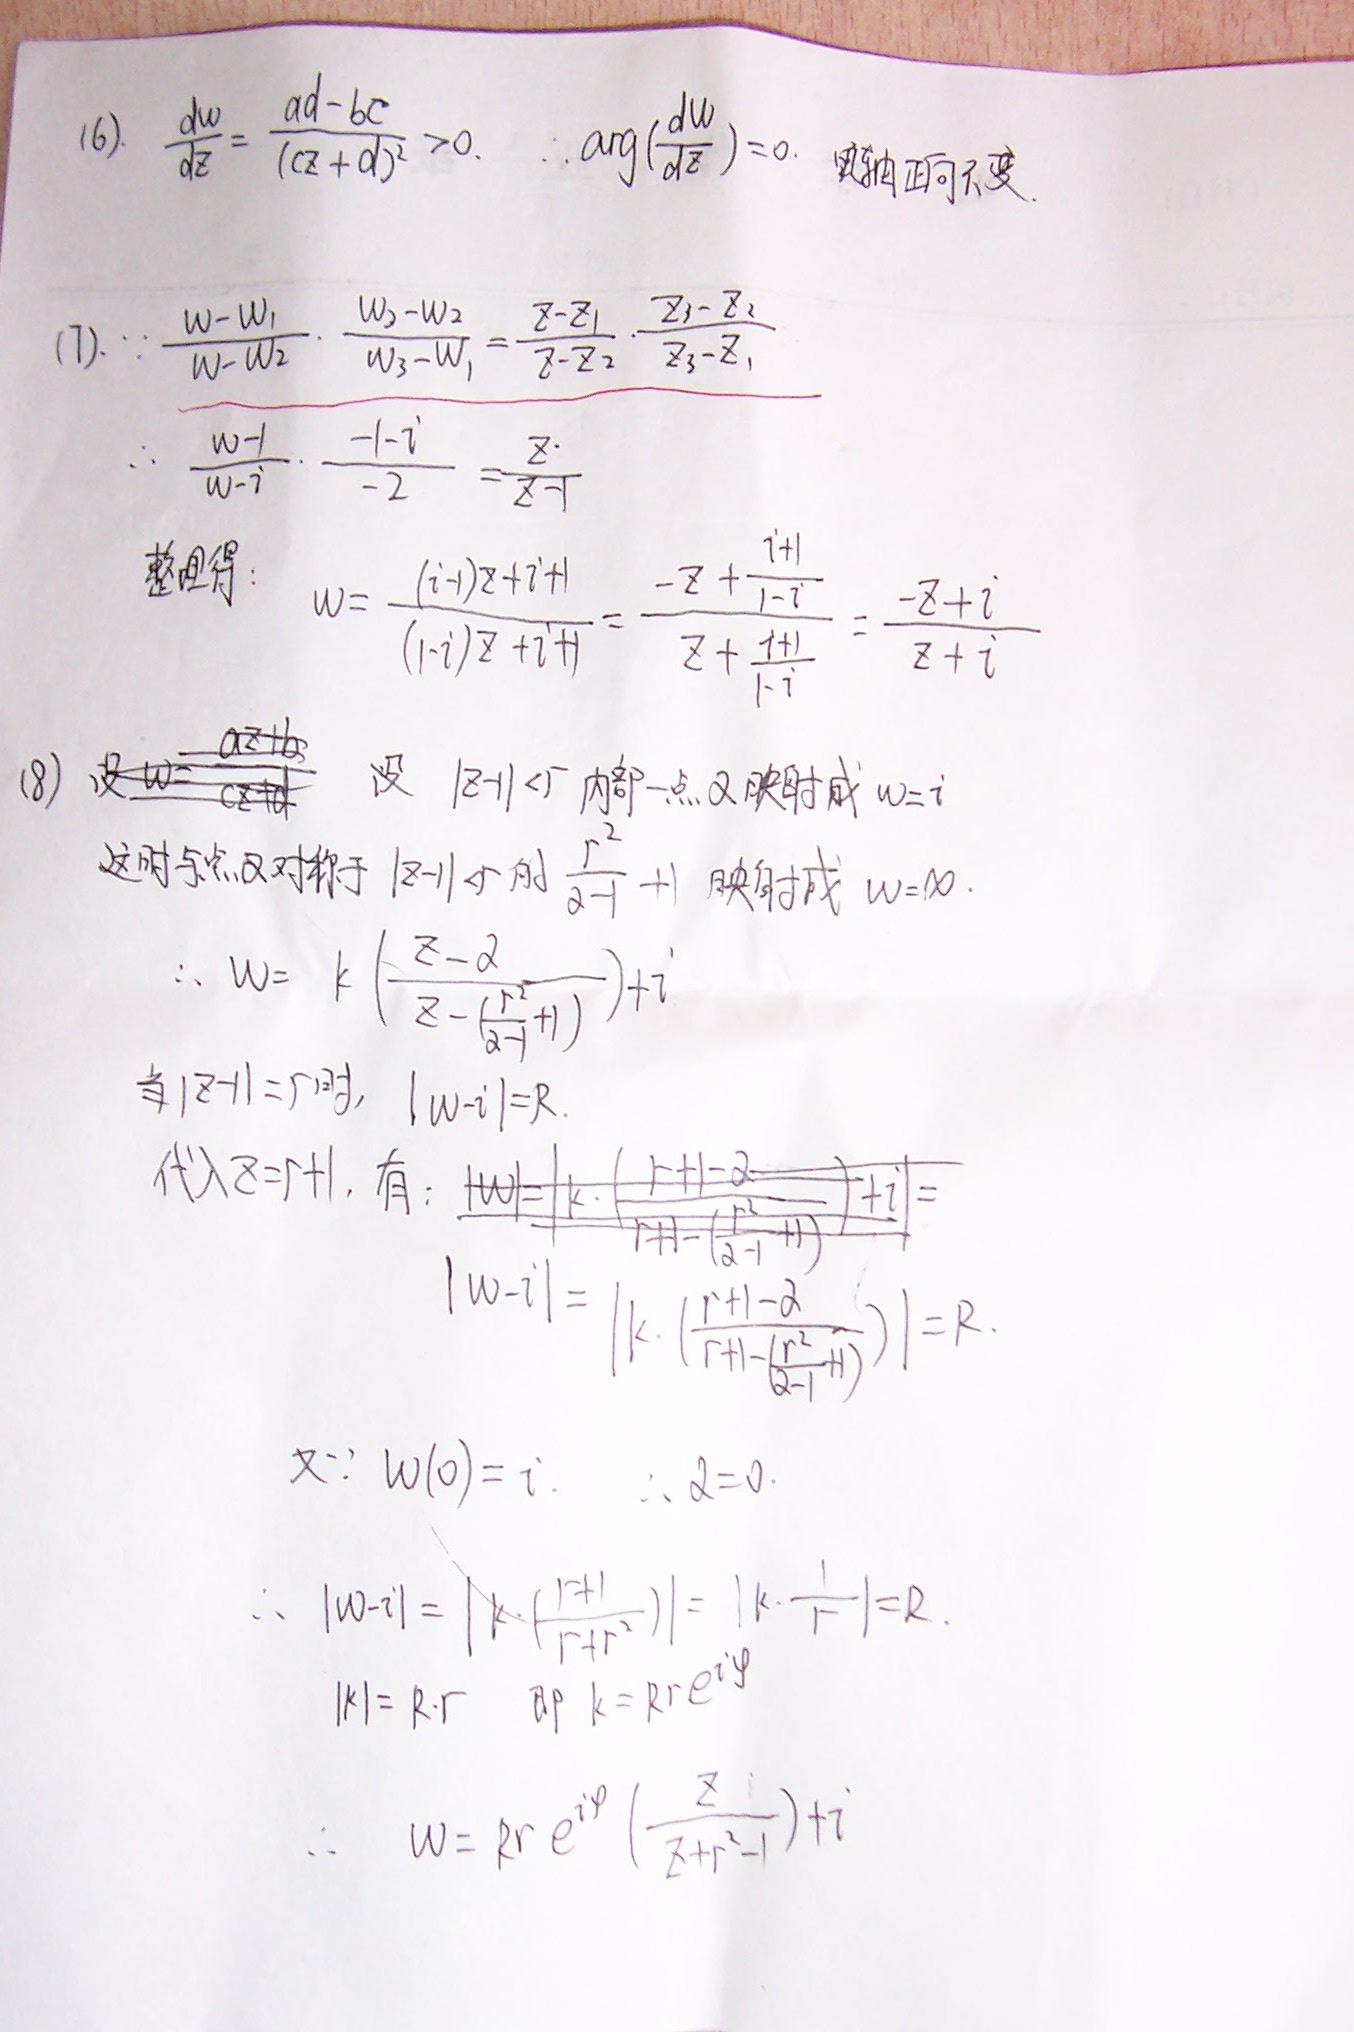 (6). dw/dz = (ad-bc)/(cz+d)² >0. ∴ arg(dw/dz)=0. 实轴正向不变.
(7). ∵ (w-w₁)/(w-w₂) · (w₃-w₂)/(w₃-w₁) = (z-z₁)/(z-z₂) · (z₃-z₂)/(z₃-z₁)
∴ (w-1)/(w-i) · (-1-i)/(-2) = z/(z-1)
整理得: w = ((i-1)z+i+1)/((1-i)z+i+1) = (-z+(i+1)/(1-i))/(z+(i+1)/(1-i)) = (-z+i)/(z+i)
(8) 设 w= (az+b)/(cz+d) 设 |z-1|<r 内部一点α映射成 w=i
这时与点α对称于 |z-1|<r 的 r²/(α-1) +1 映射成 w=∞.
∴ w= k((z-α)/(z-(r²/(α-1)+1)))+i
当|z-1|=r时, |w-i|=R.
代入z=r+1, 有: |w|=|k·((r+1-α)/(r+1-(r²/(α-1)+1)))+i|=
|w-i|=|k·((r+1-α)/(r+1-(r²/(α-1)+1)))|=R.
又∵ w(0)=i. ∴ α=0.
∴ |w-i|=|k·((r+1)/(r+r²))|=|k·1/r|=R.
|k|=R·r 即 k=Rre^{iφ}
∴ w=Rre^{iφ}(z/(z+r²-1))+i